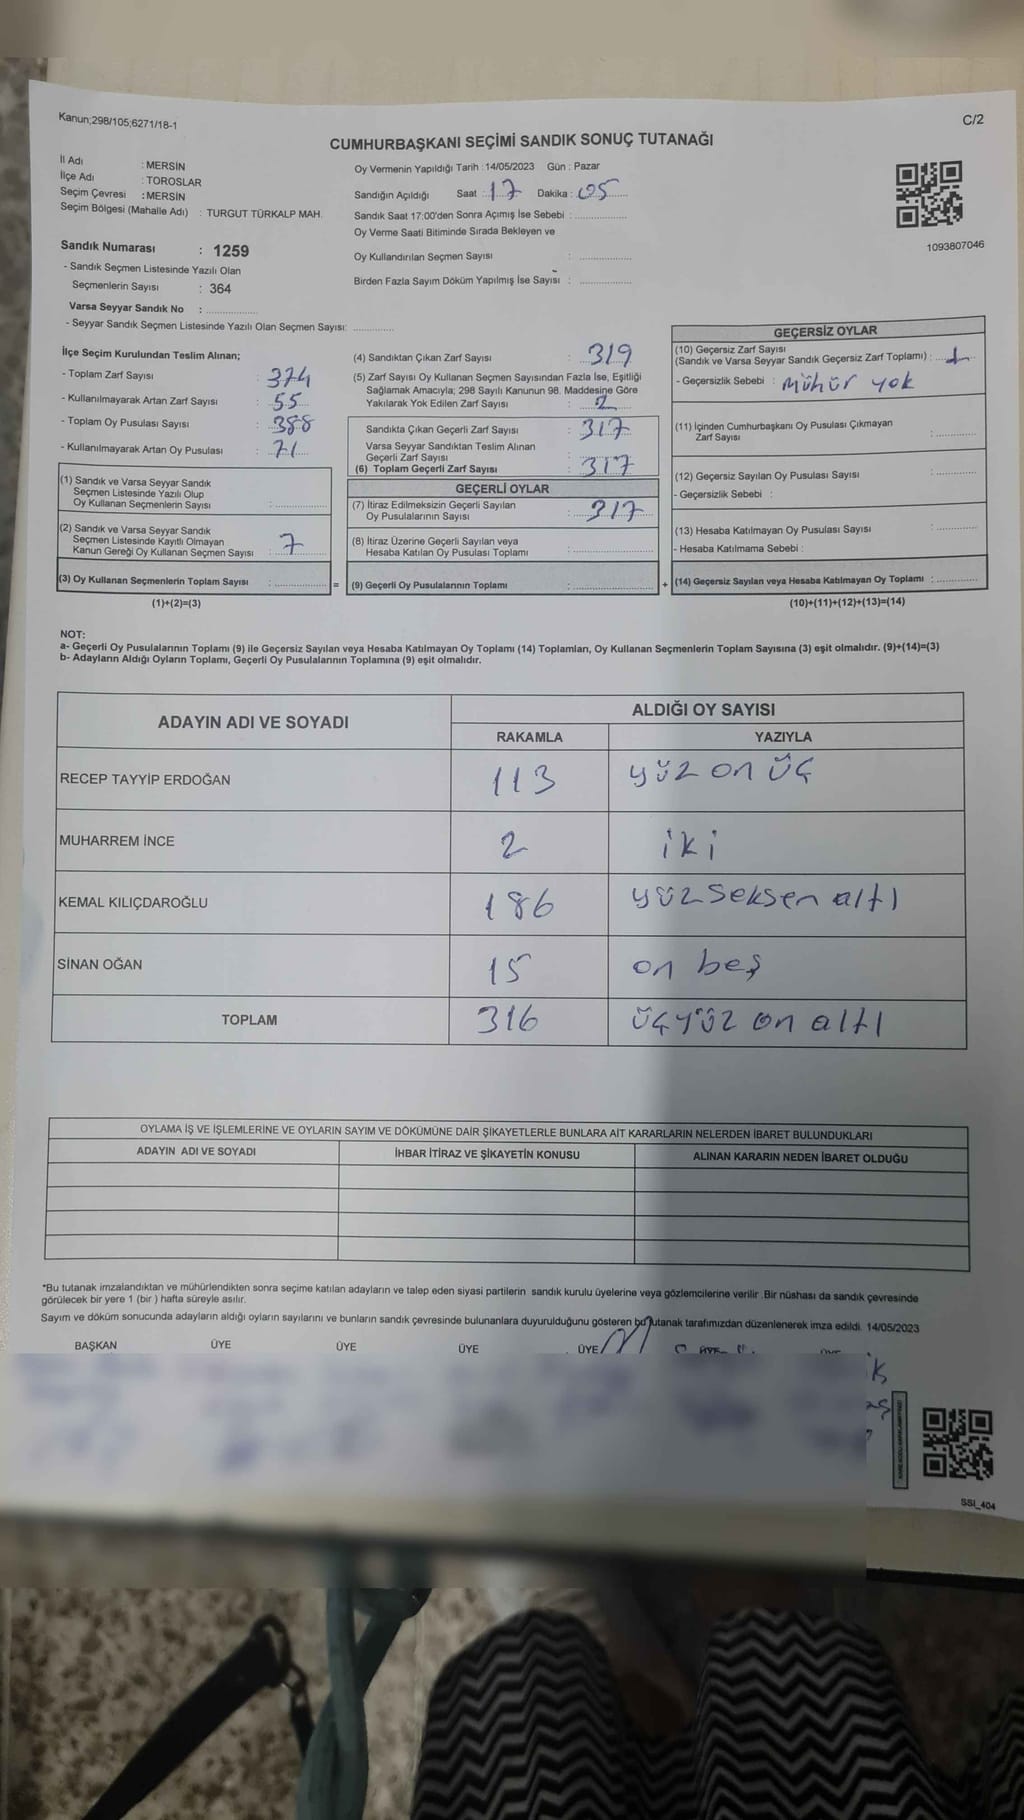 Kanun;298/105;6271/18-1
C/2
CUMHURBAŞKANI SEÇİMİ SANDIK SONUÇ TUTANAĞI
İl Adı : MERSİN
İlçe Adı : TOROSLAR
Seçim Çevresi : MERSİN
Seçim Bölgesi (Mahalle Adı) : TURGUT TÜRKALP MAH.
Oy Vermenin Yapıldığı Tarih : 14/05/2023 Gün : Pazar
Sandığın Açıldığı Saat : 17 Dakika : 05
Sandık Saat 17:00'den Sonra Açımış İse Sebebi :
Oy Verme Saati Bitiminde Sırada Bekleyen ve
Oy Kullandırılan Seçmen Sayısı :
Birden Fazla Sayım Döküm Yapılmış İse Sayısı :
1093807046
Sandık Numarası : 1259
- Sandık Seçmen Listesinde Yazılı Olan
Seçmenlerin Sayısı : 364
Varsa Seyyar Sandık No :
- Seyyar Sandık Seçmen Listesinde Yazılı Olan Seçmen Sayısı:
İlçe Seçim Kurulundan Teslim Alınan;
- Toplam Zarf Sayısı : 374
- Kullanılmayarak Artan Zarf Sayısı : 55
- Toplam Oy Pusulası Sayısı : 388
- Kullanılmayarak Artan Oy Pusulası : 71
(1) Sandık ve Varsa Seyyar Sandık
Seçmen Listesinde Yazılı Olup
Oy Kullanan Seçmenlerin Sayısı :
(2) Sandık ve Varsa Seyyar Sandık
Seçmen Listesinde Kayıtlı Olmayan
Kanun Gereği Oy Kullanan Seçmen Sayısı : 7
(3) Oy Kullanan Seçmenlerin Toplam Sayısı :
(1)+(2)=(3)
(4) Sandıktan Çıkan Zarf Sayısı : 319
(5) Zarf Sayısı Oy Kullanan Seçmen Sayısından Fazla İse, Eşitliği
Sağlamak Amacıyla; 298 Sayılı Kanunun 98. Maddesine Göre
Yakılarak Yok Edilen Zarf Sayısı : 2
Sandıkta Çıkan Geçerli Zarf Sayısı : 317
Varsa Seyyar Sandıktan Teslim Alınan
Geçerli Zarf Sayısı :
(6) Toplam Geçerli Zarf Sayısı : 317
GEÇERLİ OYLAR
(7) İtiraz Edilmeksizin Geçerli Sayılan
Oy Pusulalarının Sayısı : 317
(8) İtiraz Üzerine Geçerli Sayılan veya
Hesaba Katılan Oy Pusulası Toplamı :
= (9) Geçerli Oy Pusulalarının Toplamı :
GEÇERSİZ OYLAR
(10) Geçersiz Zarf Sayısı
(Sandık ve Varsa Seyyar Sandık Geçersiz Zarf Toplamı) : 1
- Geçersizlik Sebebi : Mühür yok
(11) İçinden Cumhurbaşkanı Oy Pusulası Çıkmayan
Zarf Sayısı :
(12) Geçersiz Sayılan Oy Pusulası Sayısı :
- Geçersizlik Sebebi :
(13) Hesaba Katılmayan Oy Pusulası Sayısı :
- Hesaba Katılmama Sebebi :
+ (14) Geçersiz Sayılan veya Hesaba Katılmayan Oy Toplamı :
(10)+(11)+(12)+(13)=(14)
NOT:
a- Geçerli Oy Pusulalarının Toplamı (9) ile Geçersiz Sayılan veya Hesaba Katılmayan Oy Toplamı (14) Toplamları, Oy Kullanan Seçmenlerin Toplam Sayısına (3) eşit olmalıdır. (9)+(14)=(3)
b- Adayların Aldığı Oyların Toplamı, Geçerli Oy Pusulalarının Toplamına (9) eşit olmalıdır.
ADAYIN ADI VE SOYADI ALDIĞI OY SAYISI
RAKAMLA YAZIYLA
RECEP TAYYİP ERDOĞAN 113 yüz on üç
MUHARREM İNCE 2 iki
KEMAL KILIÇDAROĞLU 186 yüz seksen altı
SİNAN OĞAN 15 on beş
TOPLAM 316 üçyüz on altı
OYLAMA İŞ VE İŞLEMLERİNE VE OYLARIN SAYIM VE DÖKÜMÜNE DAİR ŞİKAYETLERLE BUNLARA AİT KARARLARIN NELERDEN İBARET BULUNDUKLARI
ADAYIN ADI VE SOYADI İHBAR İTİRAZ VE ŞİKAYETİN KONUSU ALINAN KARARIN NEDEN İBARET OLDUĞU
*Bu tutanak imzalandıktan ve mühürlendikten sonra seçime katılan adayların ve talep eden siyasi partilerin sandık kurulu üyelerine veya gözlemcilerine verilir .Bir nüshası da sandık çevresinde
görülecek bir yere 1 (bir ) hafta süreyle asılır.
Sayım ve döküm sonucunda adayların aldığı oyların sayılarını ve bunların sandık çevresinde bulunanlara duyurulduğunu gösteren bu tutanak tarafımızdan düzenlenerek imza edildi. 14/05/2023
BAŞKAN ÜYE ÜYE ÜYE ÜYE
SSI_404